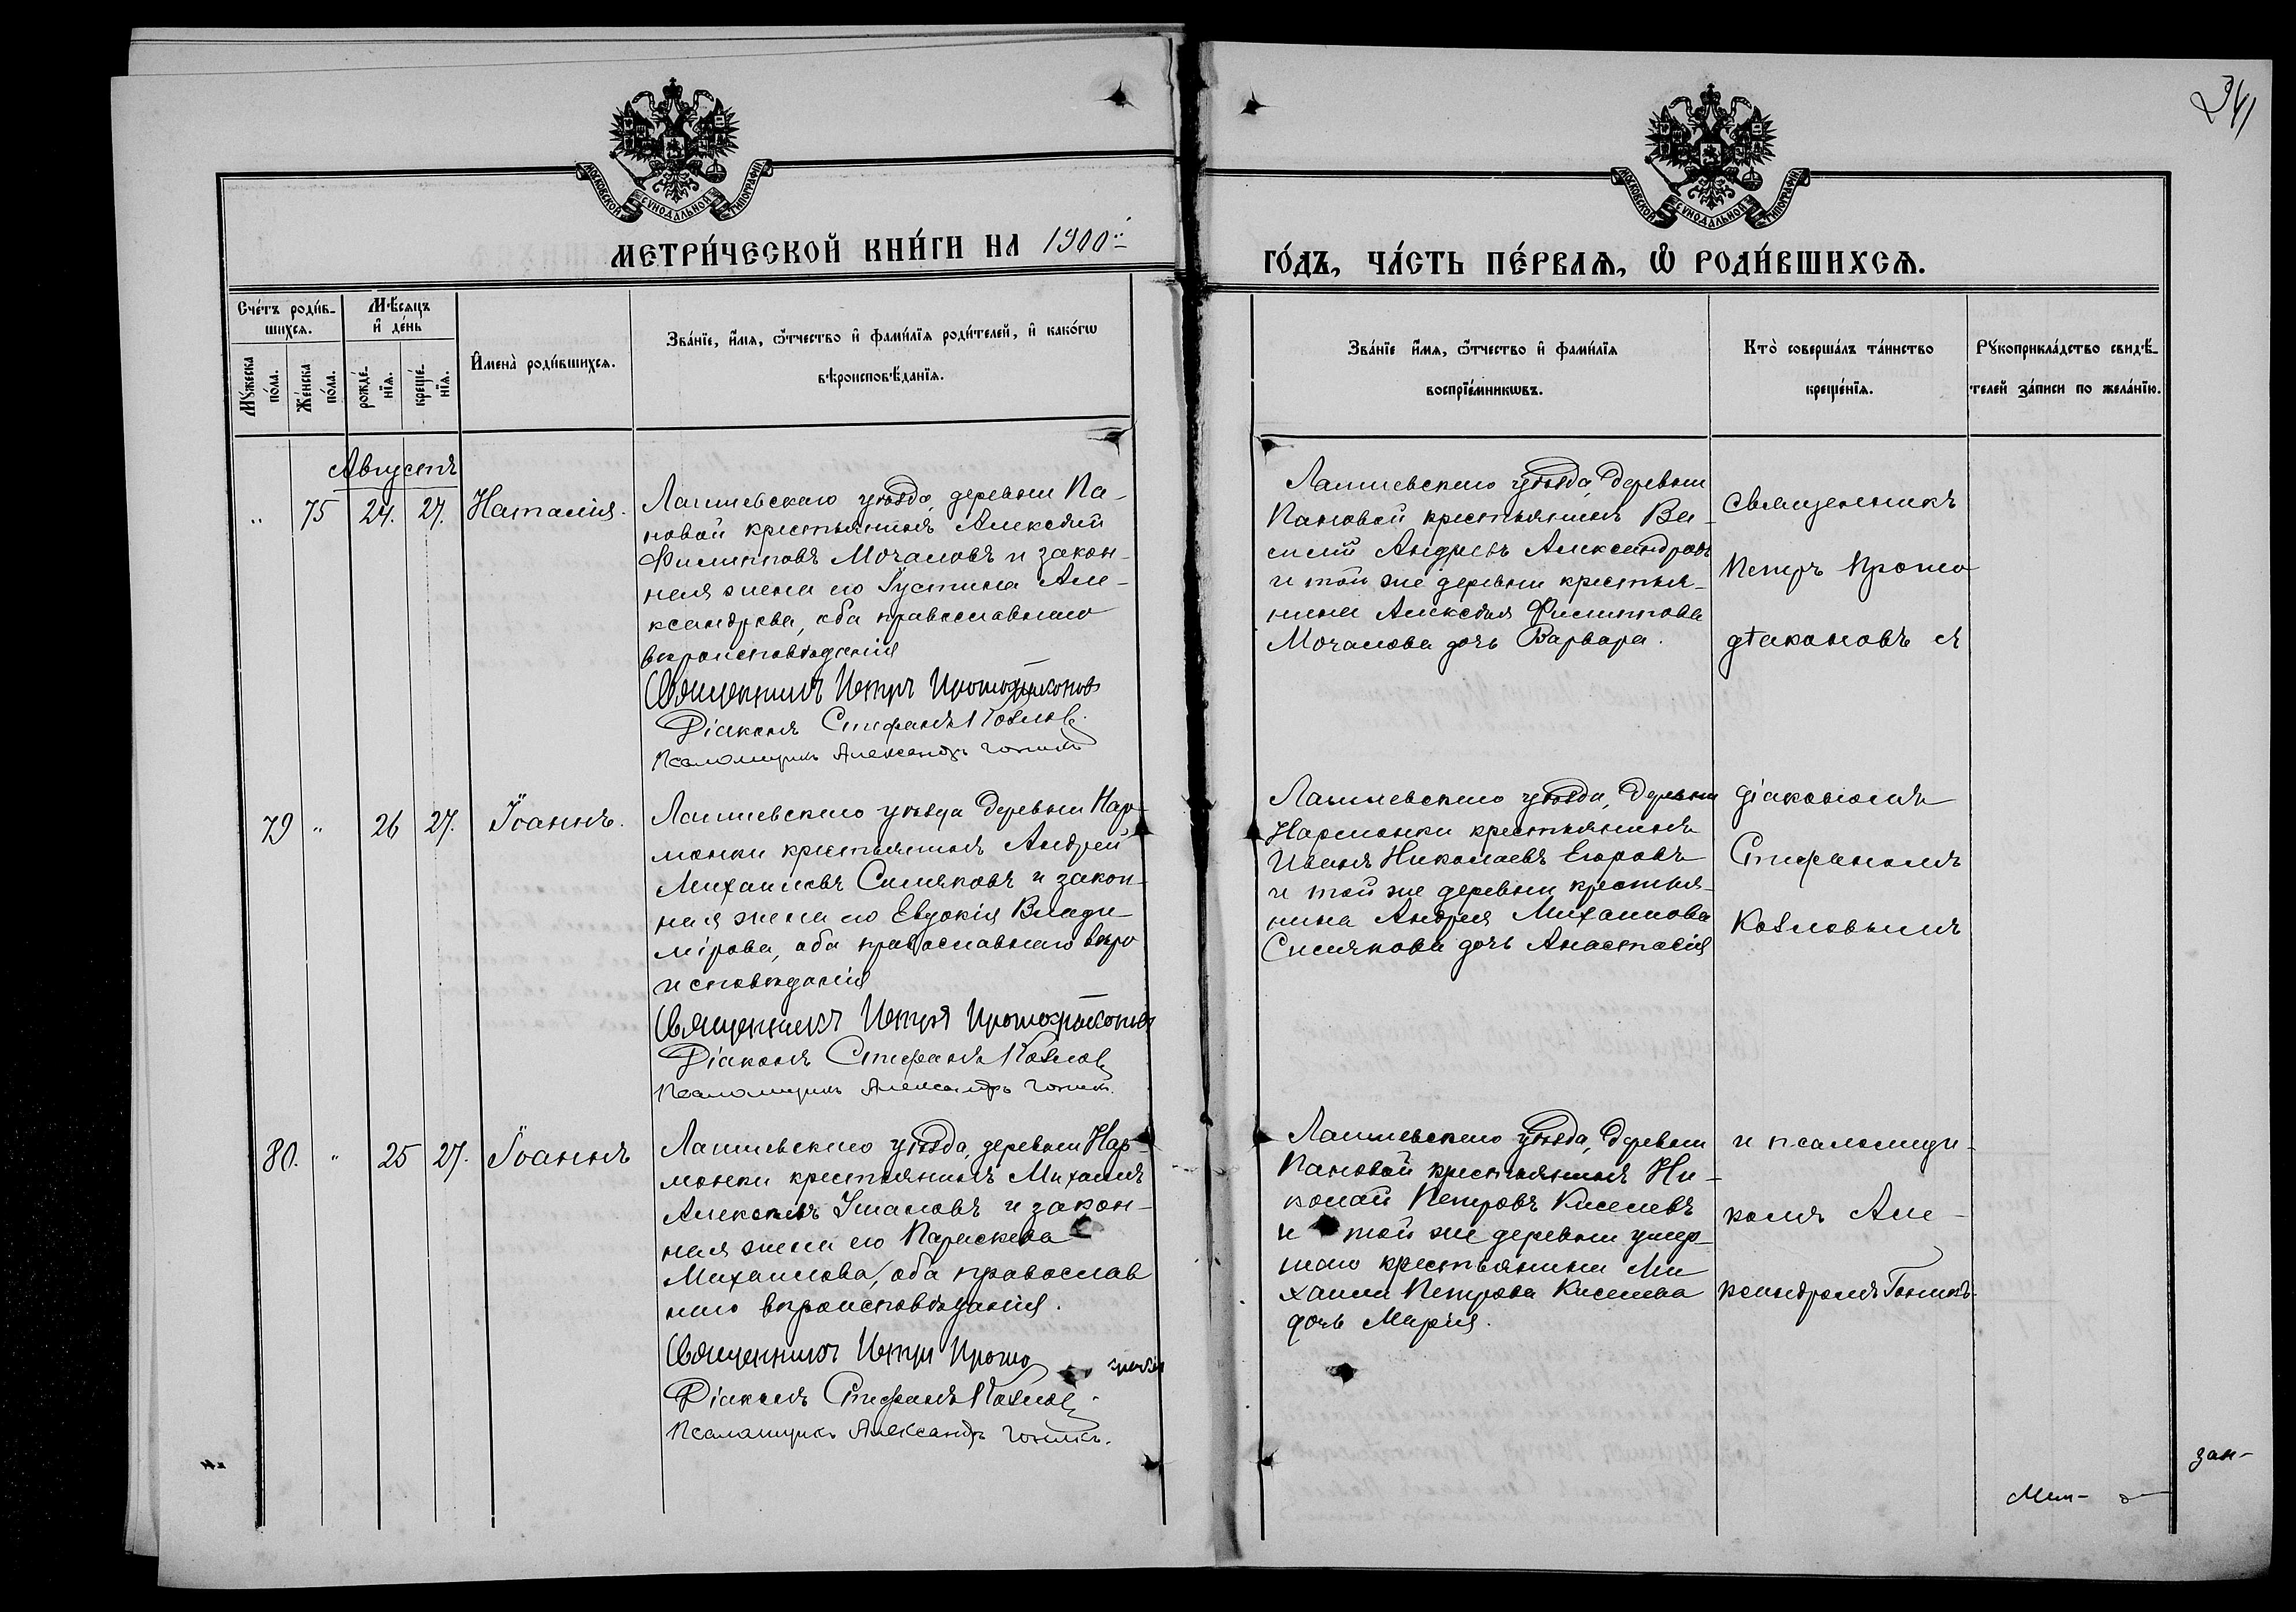 341
МОСКОВСКОЙ СѴНОДАЛЬНОЙ ТИПОГРАФІИ
МОСКОВСКОЙ СѴНОДАЛЬНОЙ ТИПОГРАФІИ
МЕТРИ́ЧЕСКОЙ КНИ́ГИ НА 1900й
ГО́ДЪ, ЧА́СТЬ ПЕ́РВАѦ, Ѡ҆ РОДИ́ВШИХСѦ.
Сче́тъ роди́в-
шихсѧ.
Мꙋ́жеска по́ла.
Же́нска по́ла.
Мѣ́сѧцъ и҆ де́нь
рожде́-нїѧ.
креще́-нїѧ.
И҆мена̀ роди́вшихсѧ.
Зва́нїе, и҆́мѧ, ѻ҆́тчество и҆ фами́лїѧ роди́телей, и҆ како́гѡ
вѣроисповѣ́данїѧ.
Зва́нїе и҆́мѧ, ѻ҆́тчество и҆ фами́лїѧ
воспрїе́мникѡвъ.
Кто̀ соверша́лъ та́инство
креще́нїѧ.
Рꙋкоприкла́дство свидѣ́-
телей за́писи по жела́нїю.
Августъ
" 75 24. 27. Наталія.
Лаишевскаго уѣзда, деревни Па-
новой крестьянинъ Алексѣй
Филипповъ Мочаловъ и закон-
ная жена его Іустина Але-
ксандрова, оба православнаго
вѣроисповѣданія
Священникъ Петръ Протодіаконовъ
Діаконъ Стефанъ Козловъ.
Псаломщикъ Александръ
Лаишевскаго уѣзда, деревни
Пановой крестьянинъ Ва-
силій Андреевъ Александровъ
и той же деревни крестья-
нина Алексѣя Филиппова
Мочалова дочь Варвара.
Священникъ
Петръ Прото
діаконовъ съ
79 " 26 27. Іоаннъ.
Лаишевскаго уѣзда деревни Нар-
монки крестьянинъ Андрей
Михаиловъ Симяковъ и закон-
ная жена его Евдокія Влади-
мірова, оба православнаго вѣро
исповѣданія
Священникъ Петръ Протодіаконовъ
Діаконъ Стефанъ Козловъ
Псаломщикъ Александръ
Лаишевскаго уѣзда, деревни
Нармонки крестьянинъ
Иванъ Николаевъ Егоровъ
и той же деревни крестья-
нина Андрея Михаилова
Симякова дочь Анастасія
діакономъ
Стефаномъ
Козловымъ
80. " 25 27. Іоаннъ
Лаишевскаго уѣзда, деревни Нар-
монки крестьянинъ Михаилъ
Алексѣевъ и закон-
ная жена его Параскева
Михаилова, оба православ
наго вѣроисповѣданія.
Священникъ Петръ Прото
Діаконъ Стефанъ Козловъ.
Псаломщикъ Александръ
Лаишевскаго уѣзда, деревни
Пановой крестьянинъ Ни-
колай Петровъ Киселевъ
и той же деревни умер-
шаго крестьянина Ми
хаила Петрова Киселева
дочь Марія.
и псаломщи-
комъ Але-
ксандромъ
зан-